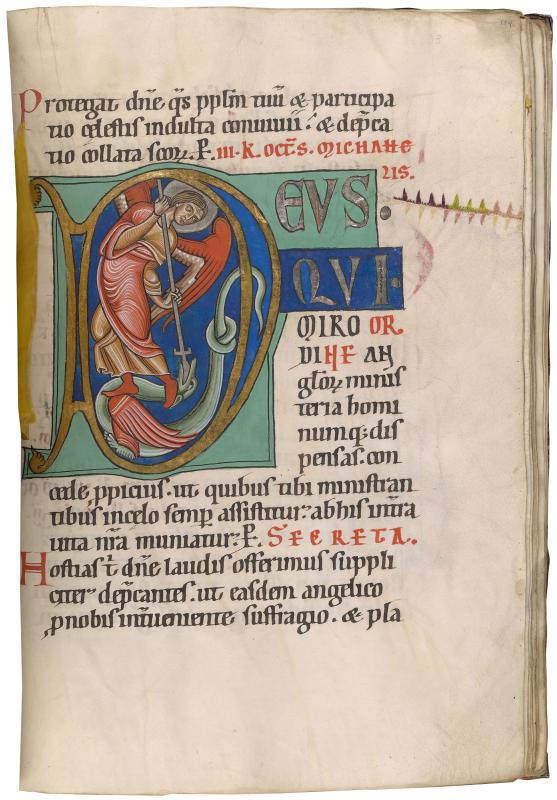 Protegat dn̄e q̄s pplm̄ tuū & participa
tio celestis indulta conuiuii: & dep̄ca
tio collata scōꝝ. P. III. K. OCTS̄. MICHAHE
LIS.
DEUS.
QUI.
MIRO OR
DINE AN
gloꝝ minis
teria homi
num q; dis
pensas. con
cede, ꝓpicius. ut quibus tibi ministran
tibus in celo semp̱ assistitur: ab his in tr̄a
uita nr̄a muniatur: P. SECRETA.
Hostias t̄ dn̄e laudis offerimus suppli
citer dep̄cantes. ut easdem angelico
, ꝓ nobis int̄ueniente suffragio. & pla